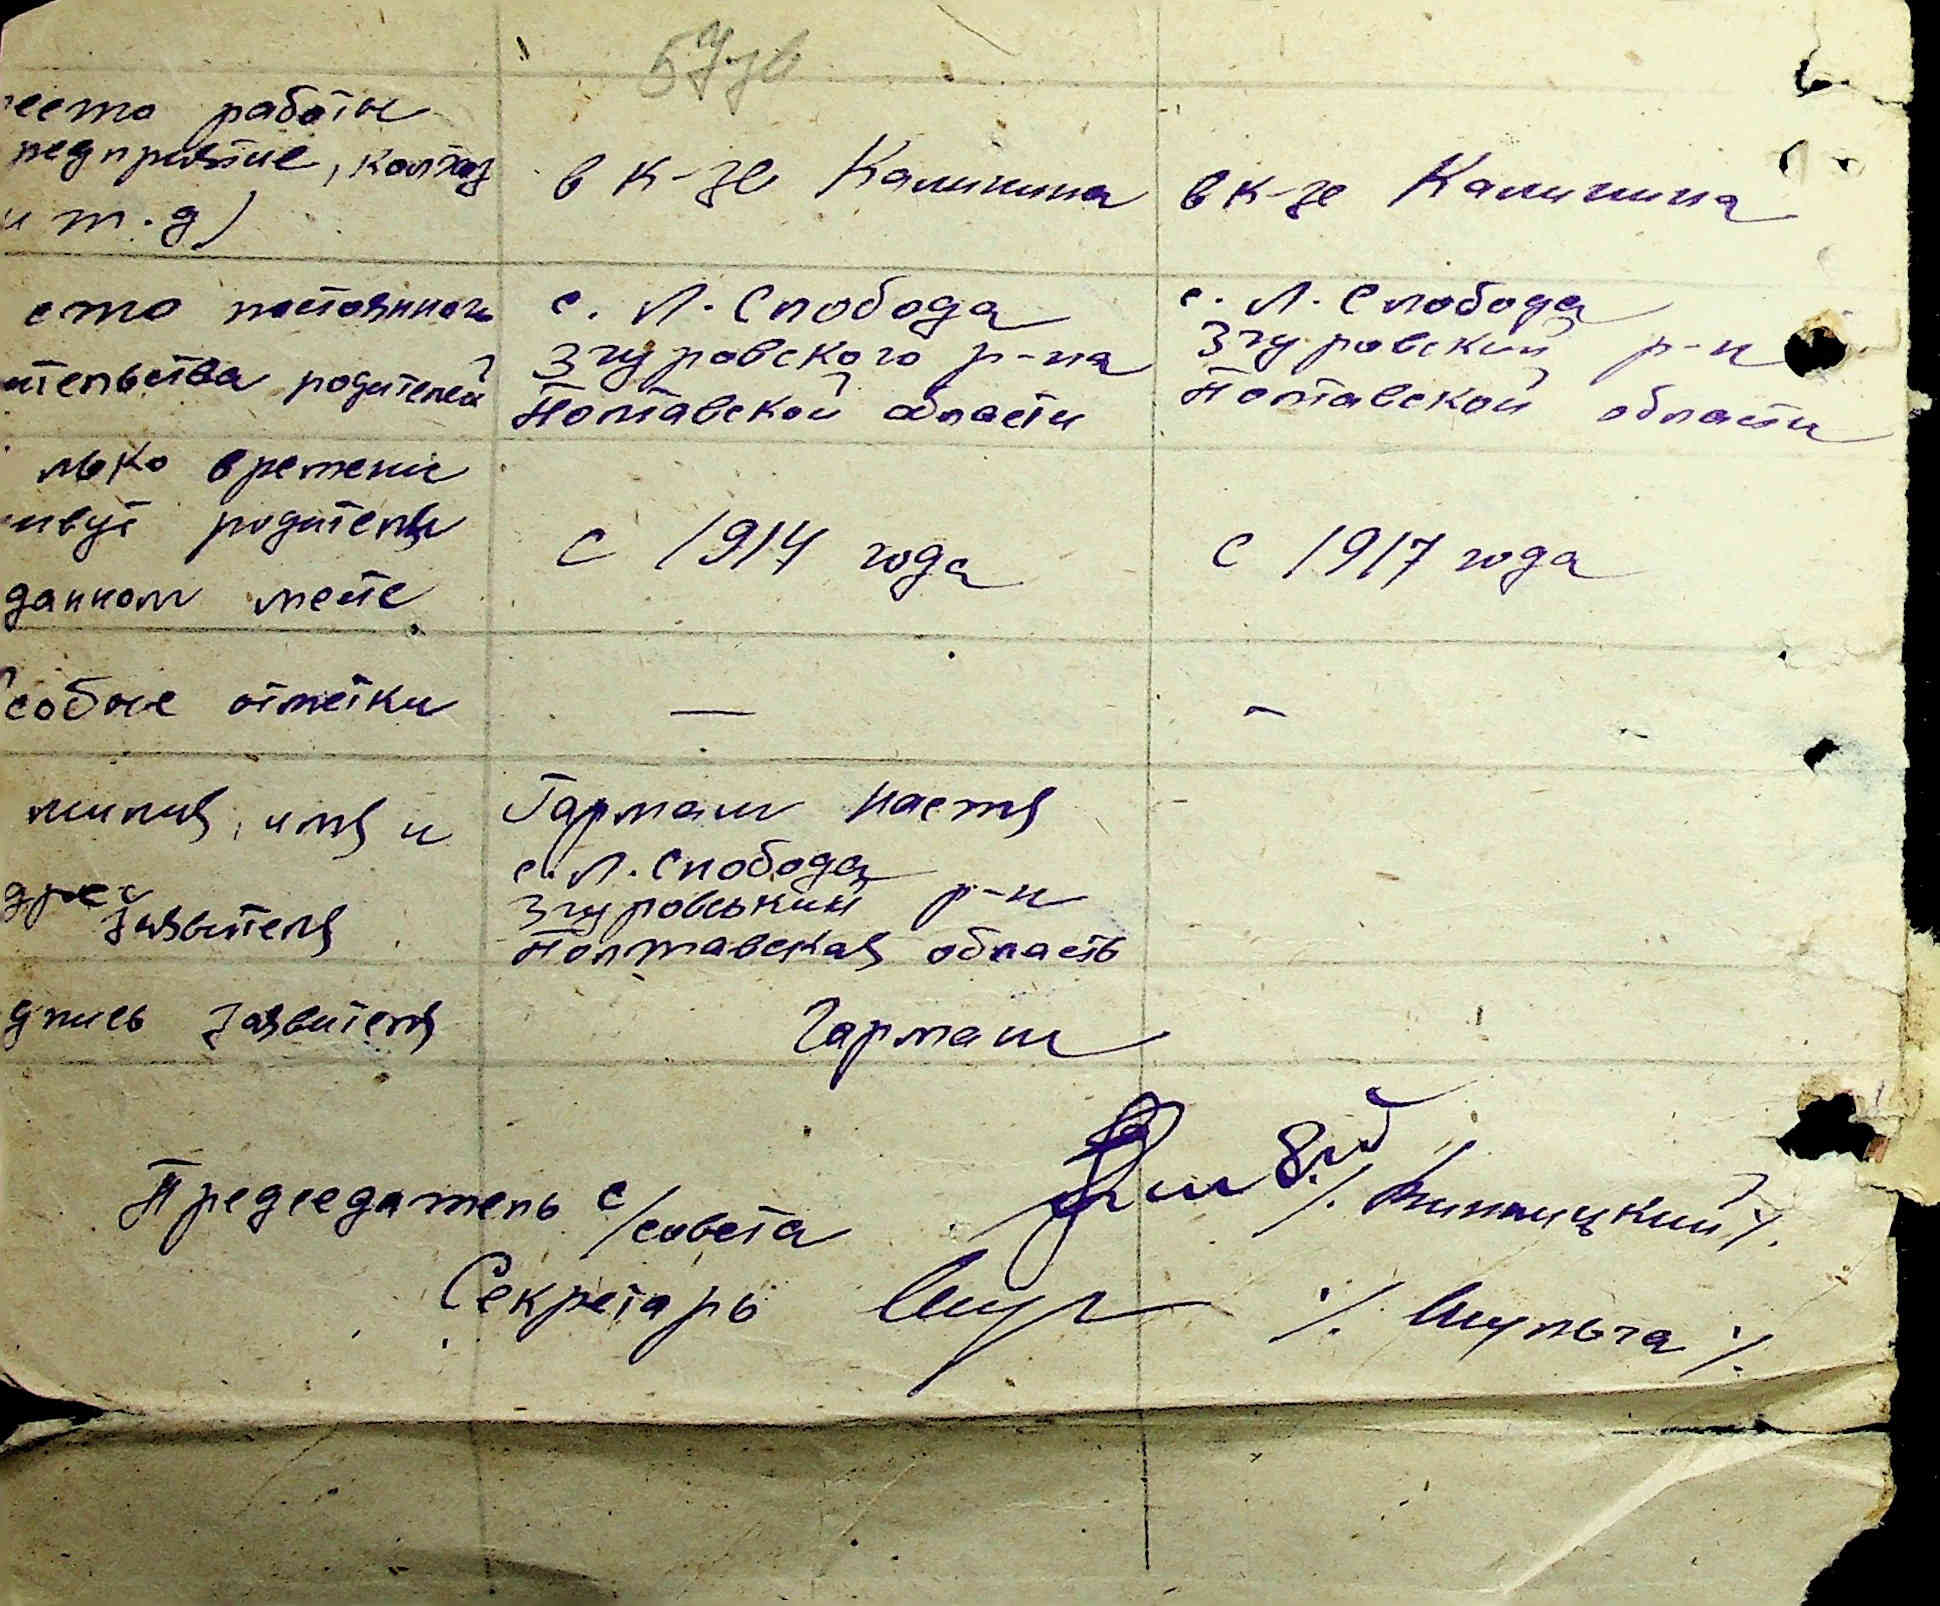 еста работы
редприятие, колхоз
и т.д)
в к-зе Калинина
в к-зе Калинина
сто постоянного
ительства родителей
с. Л. Слобода
Згуровского р-на
Полтавской области
с. Л. Слобода
Згуровский р-н
Полтавской области
лько времени
ивут родители
данном месте
с 1914 года
с 1917 года
собые отметки
—
–
милия, имя и
дрес
заявителя
Гармаш Настя
с. Л. Слобода
Згуровський р-н
Полтавская область
дпись заявителя
Гармаш
Председатель с/совета
/. Винницкий /.
Секретарь Шул /. Шульга /.